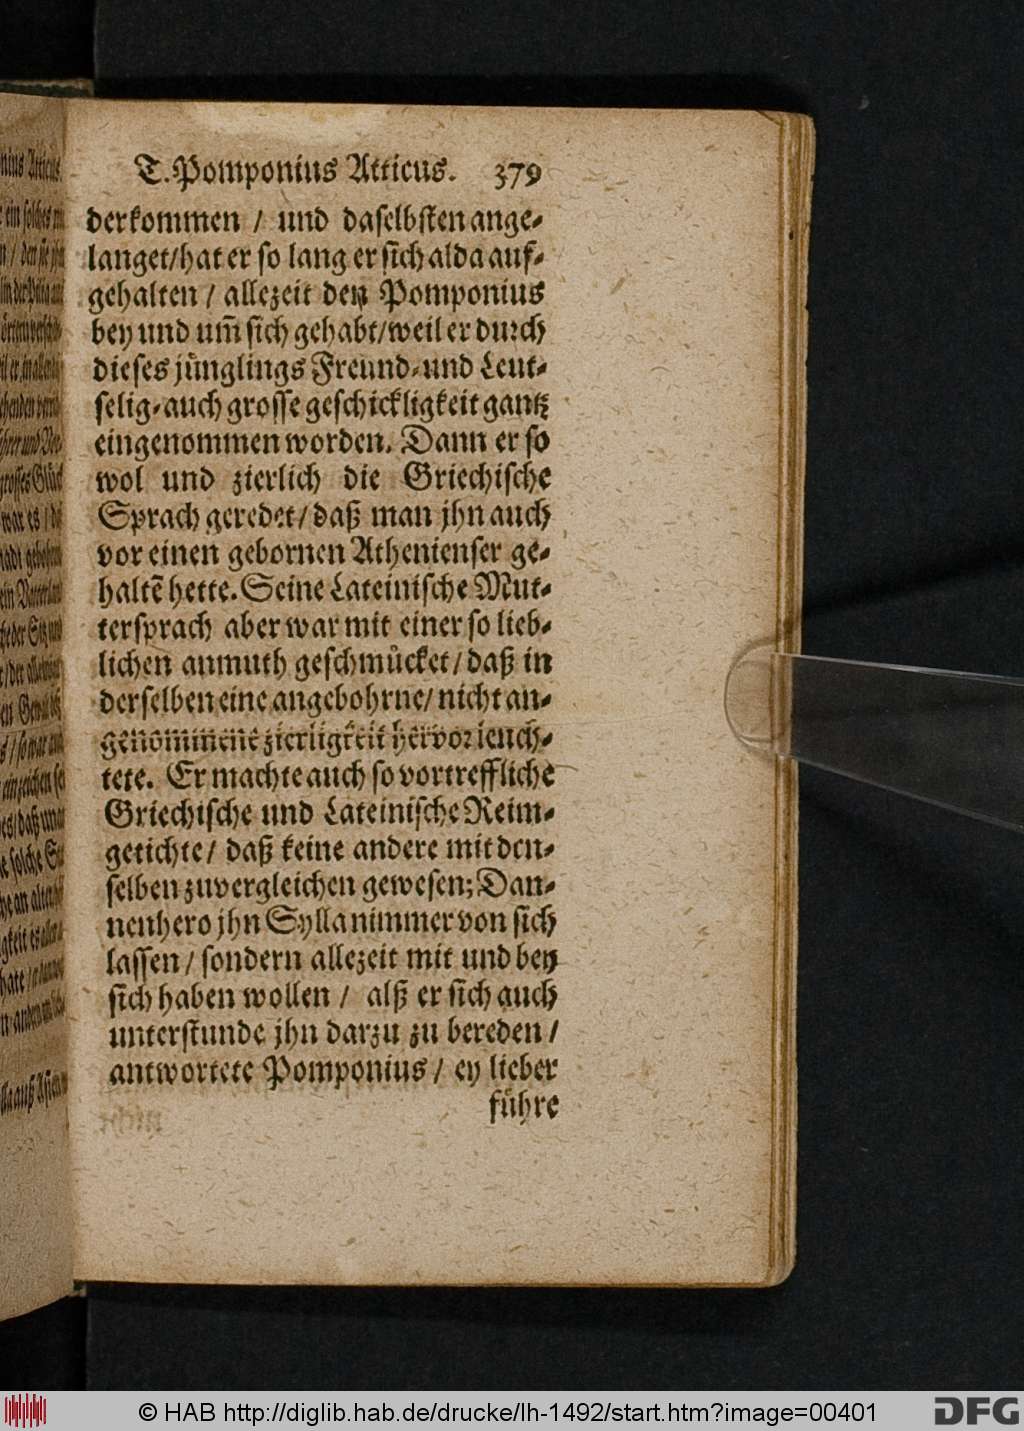 T. Pomponius Atticus. 379
derkommen / und daselbsten ange-
langet/hat er so lang er sich alda auf-
gehalten / allezeit den Pomponius
bey und um̃ sich gehabt/weil er durch
dieses jünglings Freund-und Leut-
selig-auch grosse geschickligkeit gantz
eingenommen worden. Dann er so
wol und zierlich die Griechische
Sprach geredet/daß man jhn auch
vor einen gebornen Athenienser ge-
haltẽ hette. Seine Lateinische Mut-
tersprach aber war mit einer so lieb-
lichen anmuth geschmücket/daß in
derselben eine angebohrne/nicht an-
genommene zierligkeit hervorleuch-
tete. Er machte auch so vortreffliche
Griechische und Lateinische Reim-
getichte/ daß keine andere mit den-
selben zuvergleichen gewesen; Dan-
nenhero jhn Sylla nimmer von sich
lassen / sondern allezeit mit und bey
sich haben wollen / alß er sich auch
unterstunde jhn darzu zu bereden /
antwortete Pomponius / ey lieber
führe
© HAB http://diglib.hab.de/drucke/lh-1492/start.htm?image=00401
DFG